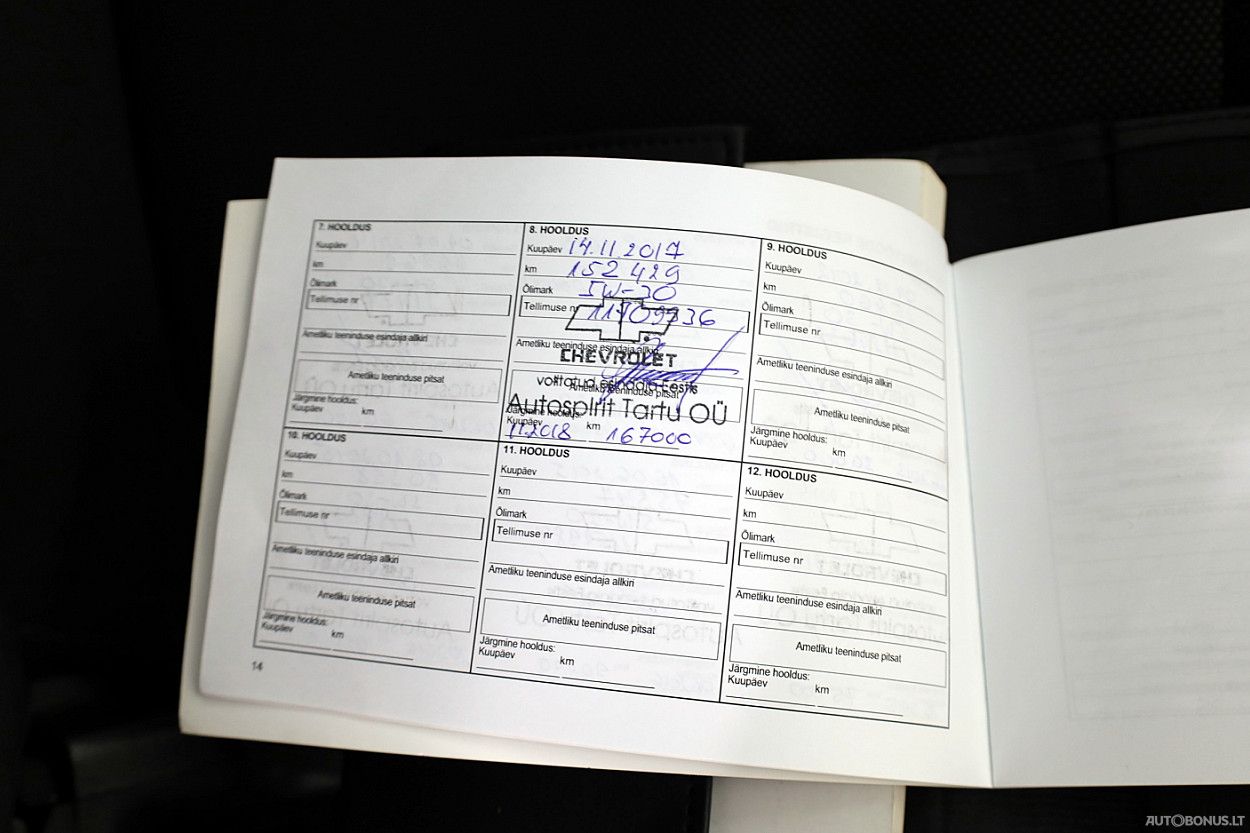 7. HOOLDUS
Kuupäev
km
Õlimark
Tellimuse nr
Ametliku teeninduse esindaja allkiri
Ametliku teeninduse pitsat
Järgmine hooldus:
Kuupäev km
8. HOOLDUS
Kuupäev 14.11.2017
km 152 429
Õlimark 5W-30
Tellimuse nr
Ametliku teeninduse esindaja allkiri
CHEVROLET
volitatud esindaja Eestis
Ametliku teeninduse pitsat
Autospirit Tartu OÜ
Järgmine hooldus:
Kuupäev km
11.2018 167000
9. HOOLDUS
Kuupäev
km
Õlimark
Tellimuse nr
Ametliku teeninduse esindaja allkiri
Ametliku teeninduse pitsat
Järgmine hooldus:
Kuupäev km
10. HOOLDUS
Kuupäev
km
Õlimark
Tellimuse nr
Ametliku teeninduse esindaja allkiri
Ametliku teeninduse pitsat
Järgmine hooldus:
Kuupäev km
11. HOOLDUS
Kuupäev
km
Õlimark
Tellimuse nr
Ametliku teeninduse esindaja allkiri
Ametliku teeninduse pitsat
Järgmine hooldus:
Kuupäev km
12. HOOLDUS
Kuupäev
km
Õlimark
Tellimuse nr
Ametliku teeninduse esindaja allkiri
Ametliku teeninduse pitsat
Järgmine hooldus:
Kuupäev km
14
AUTOBONUS.LT